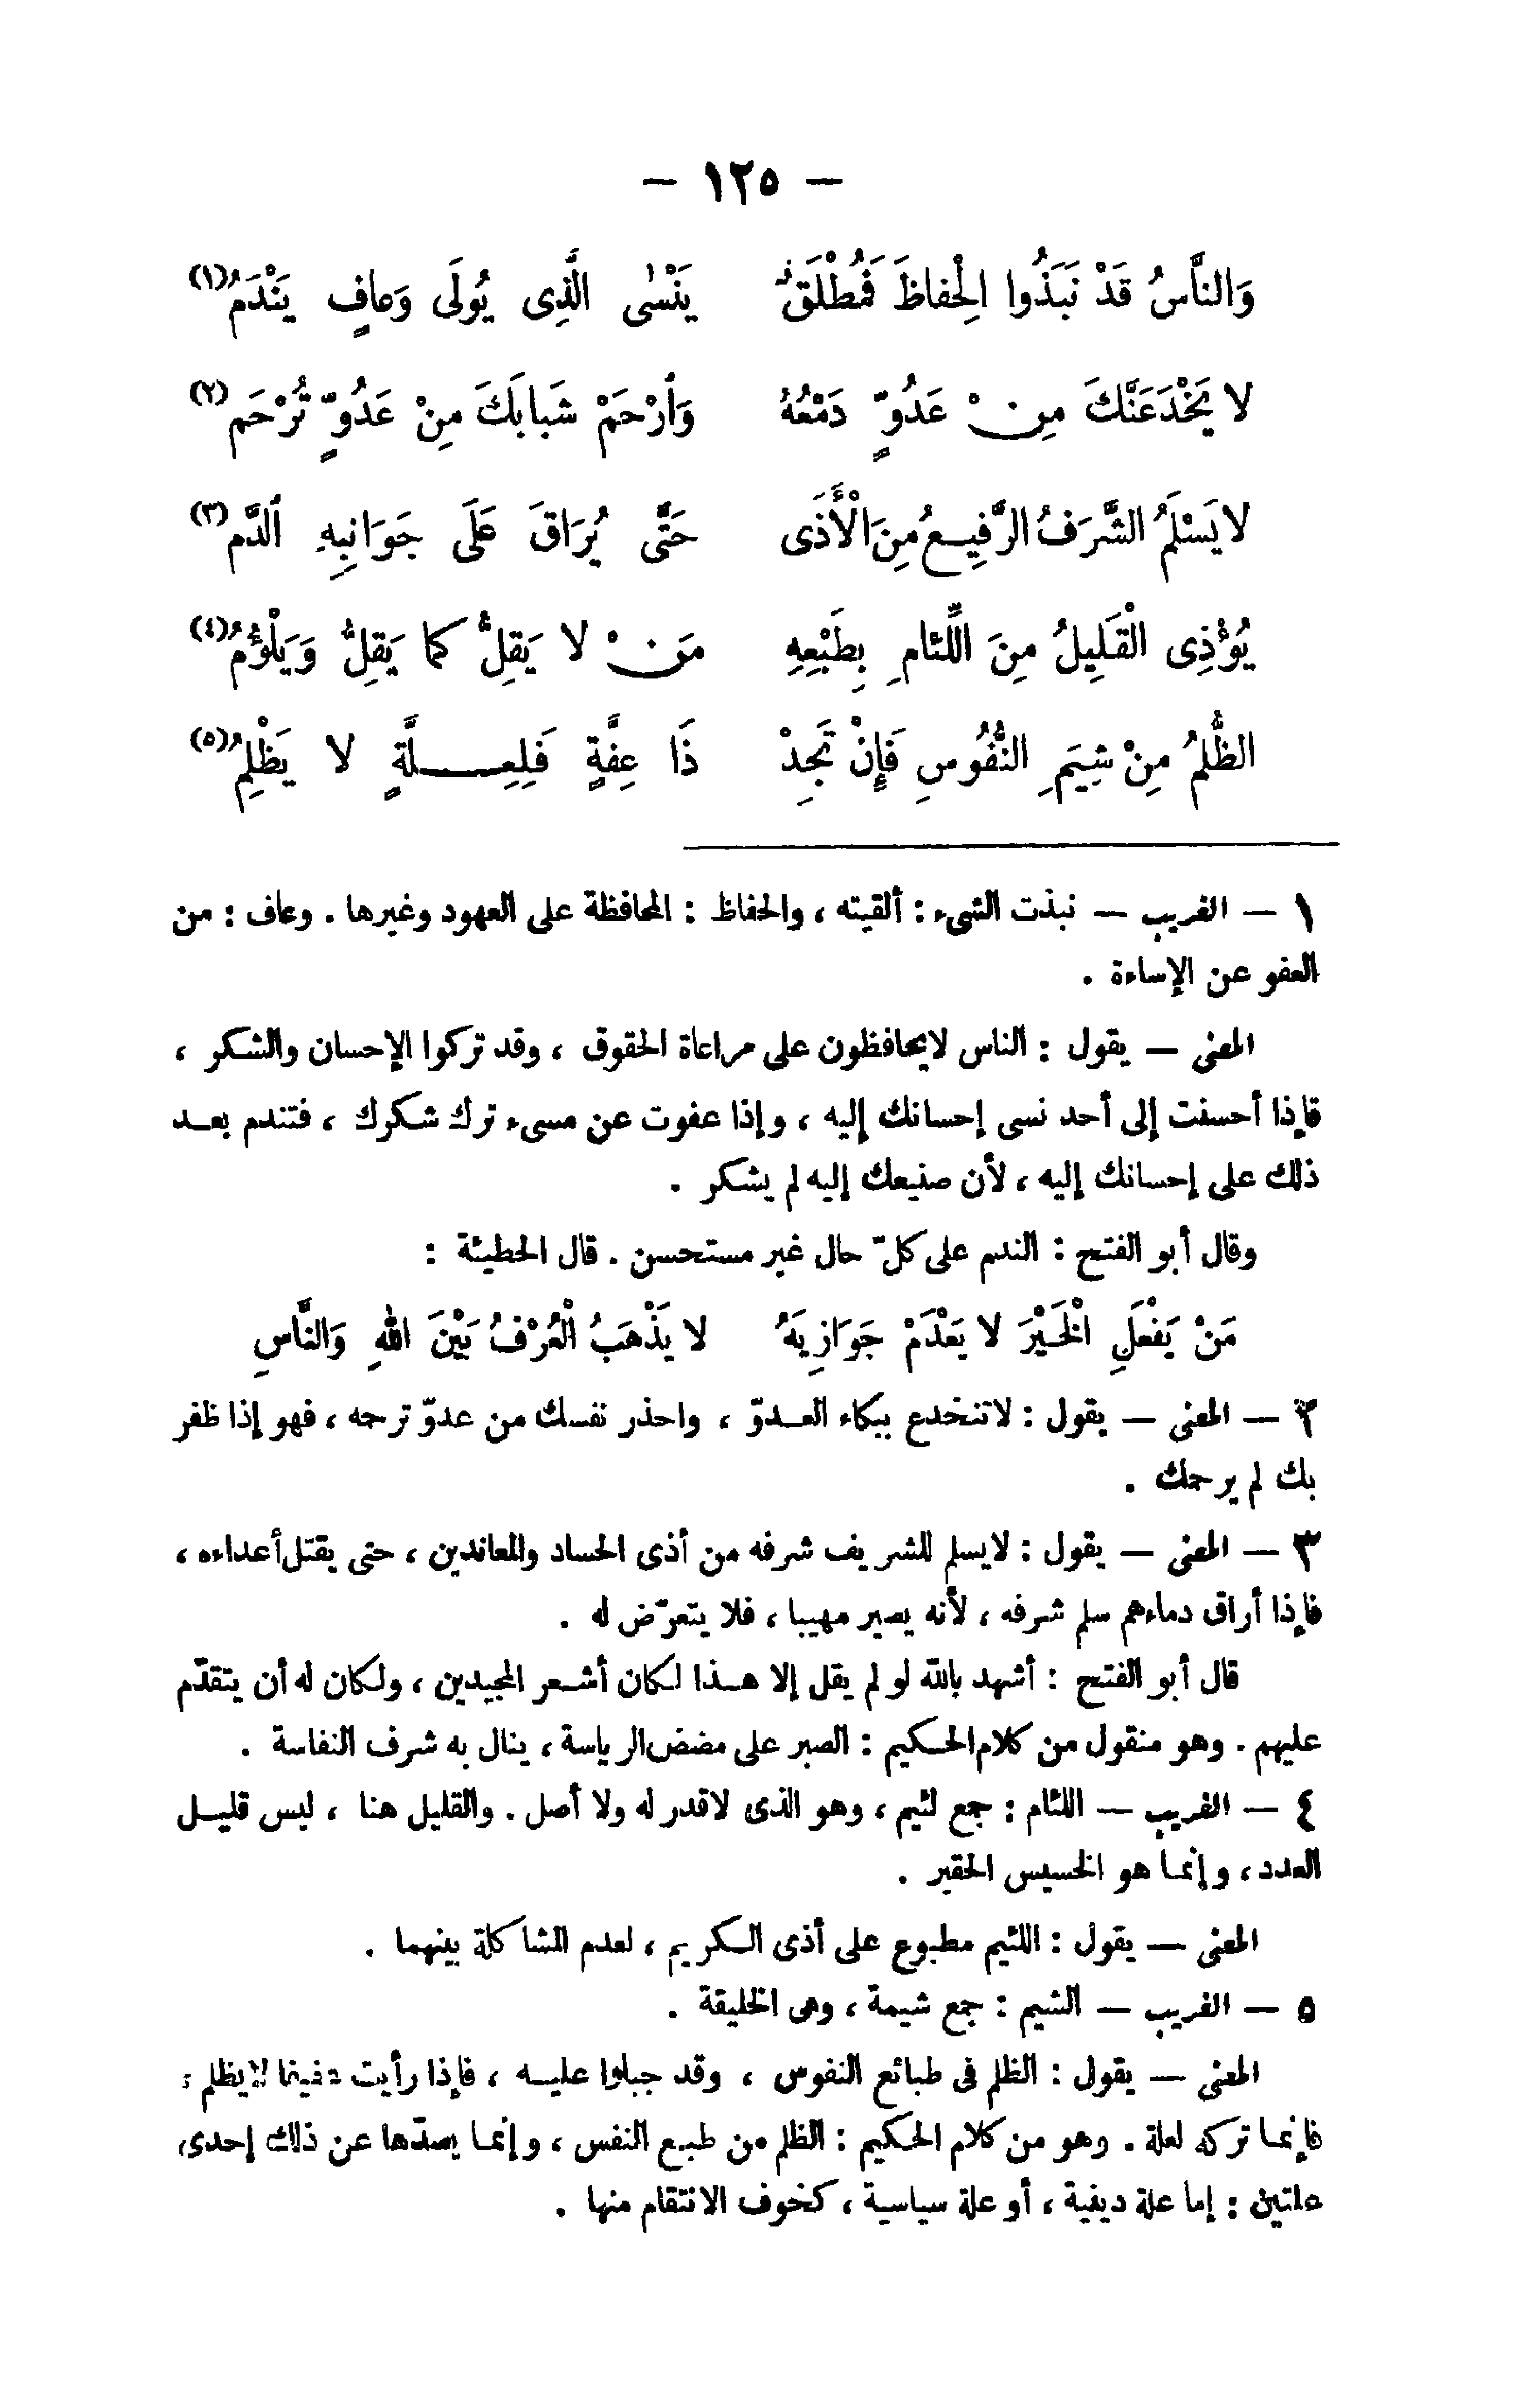 — ١٢٥ —
وَالنَّاسُ قَدْ نَبَذُوا الْحِفاظَ فَمُطْلَقٌ يَنْسٰى الَّذِى يُولَى وَعافٍ يَنْدَمُ(١)
لا يَخْدَعَنَّكَ مِنْ عَدُوٍّ دَمْعُهُ وَأرْحَمْ شَبابَكَ مِنْ عَدُوٍّ تُرْحَمِ(٢)
لا يَسْلَمُ الشَّرَفُ الرَّفِيعُ مِنَ الْأَذَى حَتَّى يُرَاقَ عَلَى جَوَانِبِهِ الدَّمُ(٣)
يُؤْذِى الْقَلِيلُ مِنَ اللِّئامِ بِطَبْعِهِ مَنْ لا يَقِلُّ كما يَقِلُّ وَيَلْؤُمُ(٤)
الظُّلمُ مِنْ شِيَمِ النُّفُوسِ فَإِنْ تَجِدْ ذَا عِفَّةٍ فَلِعِلَّةٍ لا يَظْلِمُ(٥)
١ — الغريب — نبذت الشىء : ألقيته ، والحفاظ : المحافظة على العهود وغيرها . وعاف : من
العفو عن الإساءة .
المعنى — يقول : الناس لايحافظون على مراعاة الحقوق ، وقد تركوا الإحسان والشكر ،
فإذا أحسنت إلى أحد نسى إحسانك إليه ، وإذا عفوت عن مسىء ترك شكرك ، فتندم بعد
ذلك على إحسانك إليه ، لأن صنيعك إليه لم يشكر .
وقال أبو الفتح : الندم على كلّ حال غير مستحسن . قال الحطيئة :
مَنْ يَفْعَلِ الْخَيْرَ لا يَعْدَمْ جَوَازِيَهُ لا يَذْهَبُ الْعُرْفُ بَيْنَ اللهِ وَالنَّاسِ
٢ — المعنى — يقول : لاتنخدع ببكاء العدوّ ، واحذر نفسك من عدوّ ترحمه ، فهو إذا ظفر
بك لم يرحمك .
٣ — المعنى — يقول : لايسلم للشريف شرفه من أذى الحساد والمعاندين ، حتى يقتل أعداءه ،
فإذا أراق دماءهم سلم شرفه ، لأنه يصير مهيبا ، فلا يتعرّض له .
قال أبو الفتح : أشهد بالله لو لم يقل إلا هذا لكان أشعر المجيدين ، ولكان له أن يتقدّم
عليهم . وهو منقول من كلام الحكيم : الصبر على مضض الرياسة ، ينال به شرف النفاسة .
٤ — الغريب — اللئام : جمع لئيم ، وهو الذى لاقدر له ولا أصل . والقليل هنا ، ليس قليل
العدد ، وإنما هو الخسيس الحقير .
المعنى — يقول : اللئيم مطبوع على أذى الكريم ، لعدم المشاكلة بينهما .
٥ — الغريب — الشيم : جمع شيمة ، وهى الخليقة .
المعنى — يقول : الظلم فى طبائع النفوس ، وقد جبلوا عليه ، فإذا رأيت عفيفا لايظلم ،
فإنما تركه لعلة . وهو من كلام الحكيم : الظلم من طبع النفس ، وإنما يصدّها عن ذلك إحدى
علتين : إما علة دينية ، أو علة سياسية ، كخوف الانتقام منها .